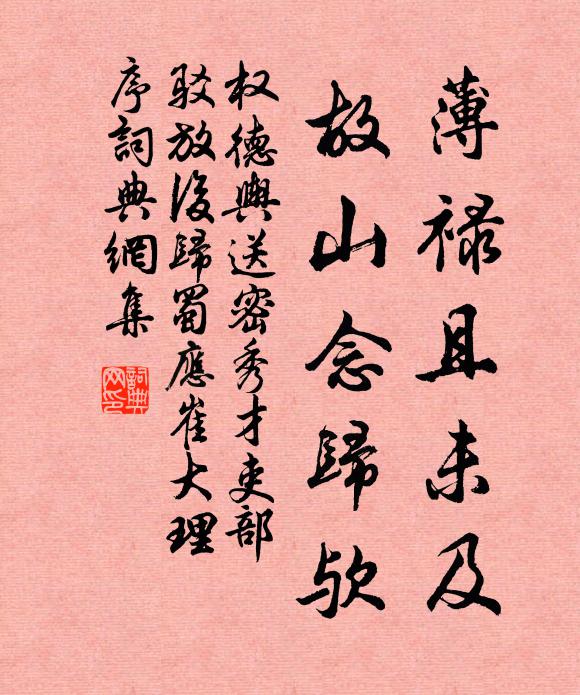 薄禄且未及
故山念歸欤
权德輿送密秀才吏部
驳放後歸蜀應崔大理
序詞典網集
詞典网印